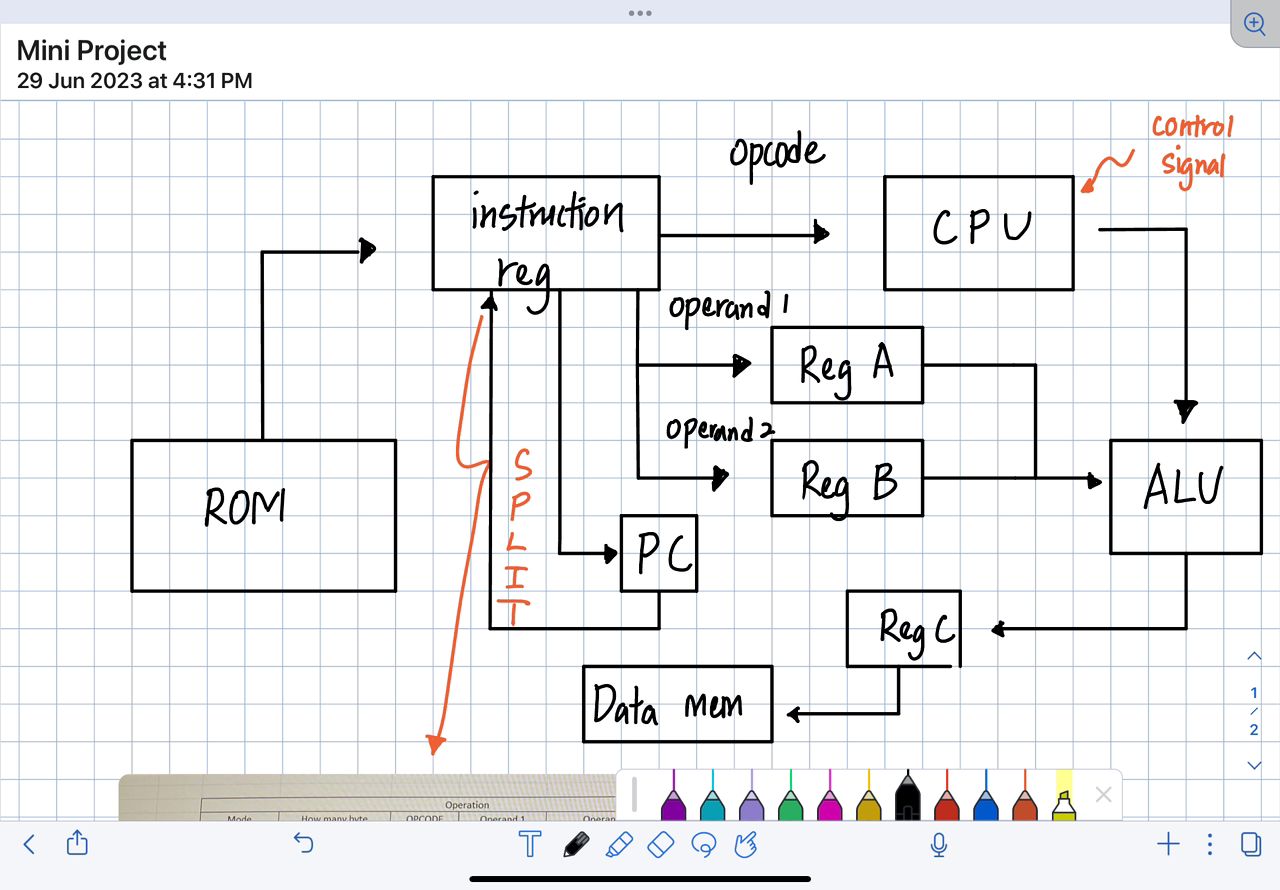 Mini Project
29 Jun 2023 at 4:31 PM
control
signal
opcode
instruction
reg
CPU
operand 1
Reg A
operand 2
Reg B
ROM
SPLIT
ALU
PC
Reg C
Data mem
1
/
2
Operation
Mode
How many byte
OPCODE
Operand 1
T